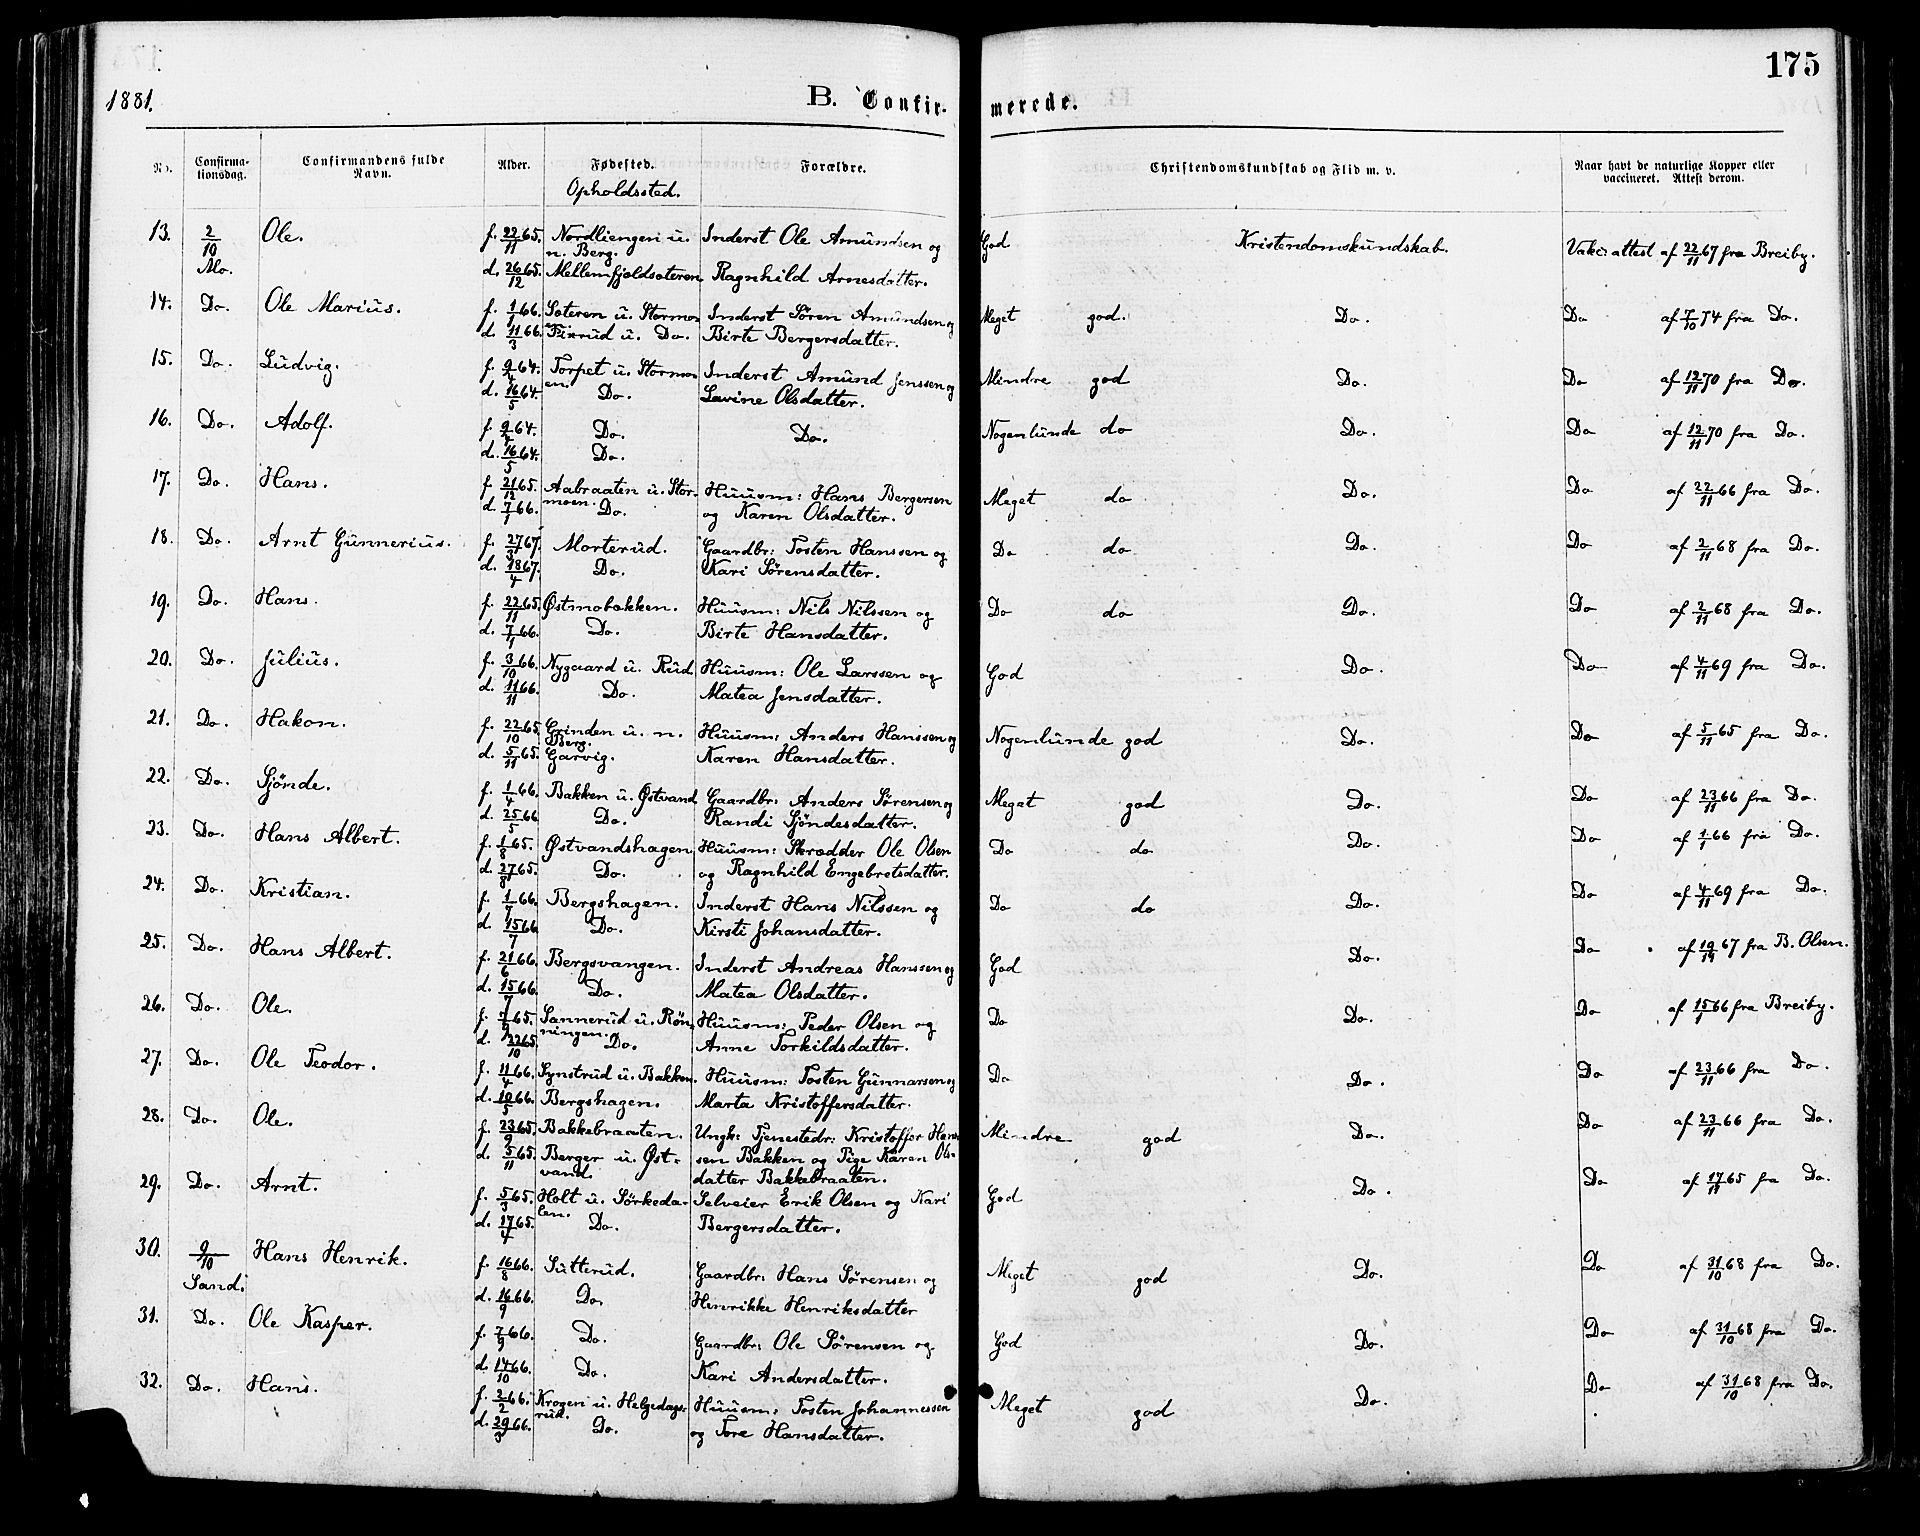 175
1881.
B. Confir-merede.
No. Confirma-tionsdag. Confirmandens fulde Navn. Alder. Fødested. Forældre. Christendomskundskab og Flid m. v. Naar havt de naturlige Kopper eller vaccineret. Attest derom.
Opholdssted.
13. 2/10 Ole. f. 22/11 65. Nordliengen u. n. Berg. Inderst Ole Amundsen og God Kristendomskundskab. Vakc: attest af 22/11 67 fra Breiby.
Mo. d. 26/12 65. Mellemfjeldsæteren Ragnhild Arnesdatter.
14. Do. Ole Marius. f. 1/1 66. Sæteren u. Stormoen Inderst Sören Amundsen og Meget god. Do. Do af 7/10 74 fra Do.
d. 11/3 66. Fixrud u. Do. Birte Bergersdatter.
15. Do. Ludvig. f. 9/4 64. Torpet u. Stormoen. Inderst Amund Jenssen og Mindre god Do. Do af 12/11 70 fra Do.
d. 16/5 64. Do. Lavine Olsdatter.
16. Do. Adolf. f. 9/4 64. Do. Do. Nogenlunde do Do. Do af 12/11 70 fra Do.
d. 16/5 64. Do.
17. Do. Hans. f. 21/12 65. Aabraaten u. Stormoen. Huusm: Hans Bergersen Meget do Do. Do af 22/11 66 fra Do.
d. 7/1 66. Do. og Karen Olsdatter.
18. Do. Arnt Gunnerius. f. 27/3 67. Morterud. Gaardbr: Tosten Hanssen og Do do Do. Do af 2/11 68 fra Do.
d. 18/4 67. Do. Kari Sörensdatter.
19. Do. Hans. f. 22/11 65. Østmobakken. Huusm: Nils Nilssen og Do do Do. Do af 2/11 68 fra Do.
d. 7/1 66. Do. Birte Hansdatter.
20. Do. Julius. f. 3/10 66. Nygaard u. Rud Huusm: Ole Larssen og God Do. Do af 4/11 69 fra Do.
d. 11/11 66. Do. Matea Jensdatter.
21. Do. Hakon. f. 22/10 65. Grinden u. n. Berg. Huusm: Anders Hanssen og Nogenlunde god Do. Do af 5/11 65 fra Do.
d. 5/11 65. Garvig. Karen Hansdatter.
22. Do. Sjönde. f. 1/4 66. Bakken u. Østvand Gaardbr: Anders Sörensen og Meget god Do. Do af 23/11 66 fra Do.
d. 25/5 66 Do. Randi Sjöndesdatter.
23. Do. Hans Albert. f. 1/8 65. Østvandshagen Huusm: Skrædder Ole Olsen Do do Do. Do af 1/1 66 fra Do.
d. 27/8 65. Do. og Ragnhild Engebretsdatter.
24. Do. Kristian. f. 1/7 66. Bergshagen. Inderst Hans Nilssen og Do do Do. Do af 4/11 69 fra Do.
d. 15/7 66 Do. Kirsti Johansdatter.
25. Do. Hans Albert. f. 21/6 66. Bergsvangen. Inderst Andreas Hanssen og God Do. Do af 19/11 67 fra B. Olsen.
d. 15/7 66. Do. Matea Olsdatter.
26. Do. Ole. f. 7/9 65. Sannerud u. Rönningen. Huusm: Peder Olsen og Do Do. Do af 15/1 66 fra Breiby.
d. 22/10 65 Do. Anne Torkildsdatter.
27. Do. Ole Teodor. f. 11/4 66. Synstrud u. Bakken. Huusm: Tosten Gunnarsen og Do Do. Do af 23/11 66 fra Do.
d. 10/5 66. Bergshagen. Marta Kristoffersdatter.
28. Do. Ole. f. 23/9 65. Bakkebraaten. Ungk: Tjenestedr: Kristoffer Hans- Mindre god Do. Do af 23/11 66 fra Do.
d. 5/11 65. Berger u. Østvand. sen Bakken og Pige Karen Ols-
datter Bakkebraaten.
29. Do. Arnt. f. 5/3 65. Holt u. Sörkedalen. Selveier Erik Olsen og Kari God Do. Do af 17/11 65 fra Do.
d. 17/4 65. Do. Bergersdatter.
30. 9/10 Hans Henrik. f. 16/8 66. Sutterud. Gaardbr: Hans Sörensen og Meget god Do. Do af 31/10 68 fra Do.
Sand. d. 16/9 66. Do. Henrikke Henriksdatter
31. Do. Ole Kasper. f. 7/9 66. Do. Gaardbr: Ole Sörensen og God Do. Do af 31/10 68 fra Do.
d. 14/10 66. Do. Kari Andersdatter.
32. Do. Hans. f. 2/2 66. Krogen u. Helgedagsrud. Huusm: Tosten Johannessen Meget god Do. Do af 31/10 68 fra Do.
d. 29/3 66. Do. og Tore Hansdatter.